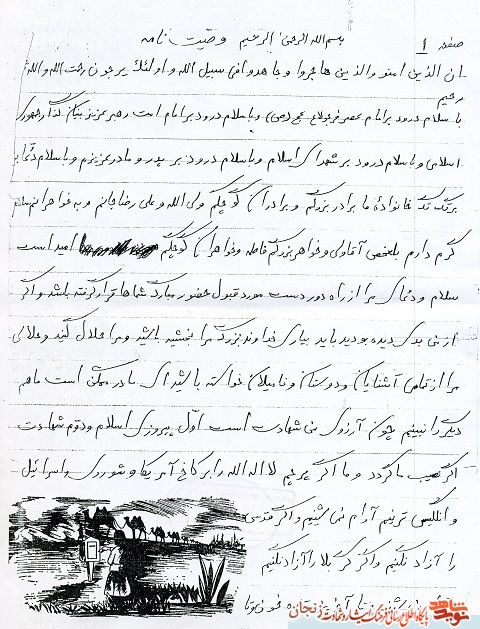 صفحه 1
بسم الله الرحمن الرحیم وصیت نامه
ان الذین امنو والذین هاجروا و جاهدوا فی سبیل الله و اولئک یرجون رحمت الله والله
رحیم
با سلام درود بر امام عصر عج (عج) و با سلام درود بر امام امت رهبر عزیز بنیان گذار جمهوری
اسلامی و با سلام درود بر شهدای اسلام و با سلام درود بر پدر و مادر عزیزم و با سلام و دعا بر
تک تک خانواده ما برادر بزرگم و برادران کوچکم ولی الله و علی رضا جانم و به خواهرانم سلام
گرم دارم بلخص آقا ولی و خواهر بزرگم فاطمه و خواهران کوچکم امید است
سلام و دعای مرا از راه دور دست مورد قبول حضور مبارک شماها قرار گرفته باشد و اگر
از من بدی دیده بودید باید بیاری خداوند بزرگ مرا بخشیده باشید و مرا حلال کنید و حلالی
مرا از تمامی آشنایان و دوستان و فامیلان خواسته باشید ای مادر ممکن است ما هم
دیگر را نبینیم چون آرزوی من شهادت است اول پیروزی اسلام و دوم شهادت
اگر نصیب ما گردد و ما اگر پرچم لا اله الا الله را بر کاخ آمریکا و شوروی و اسرائیل
و انگلیس نزنیم آرام نمی شینیم و اگر قدس
را آزاد نکنیم و اگر کربلا را آزاد نکنیم
نوید شاهد
پایگاه اطلاع رسانی فرهنگ ایثار و شهادت زنجان